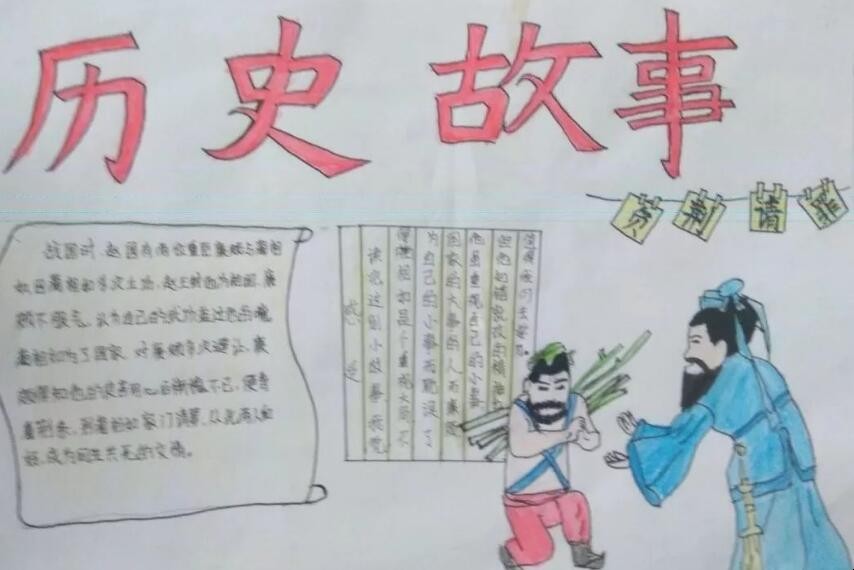 历史故事
负荆请罪
战国时,赵国有两位重臣廉颇与蔺相
如因蔺相如多次立功,赵王封他为相国,廉
颇不服气,认为自己的战功盖过他的
蔺相如为了国家,对廉颇多次避让,廉
颇得知他的良苦用心后惭愧不已,便背
着荆条,到蔺相如家门请罪,从此两人和
好,成为同生共死的交情。
感受
读完这则小故事,我觉
得蔺相如是个重视大局,不
为自己的小事而耽误了
国家的大事的人而廉颇
他虽重视自己的小事
但他知错就改的精神
值得我们去学习。